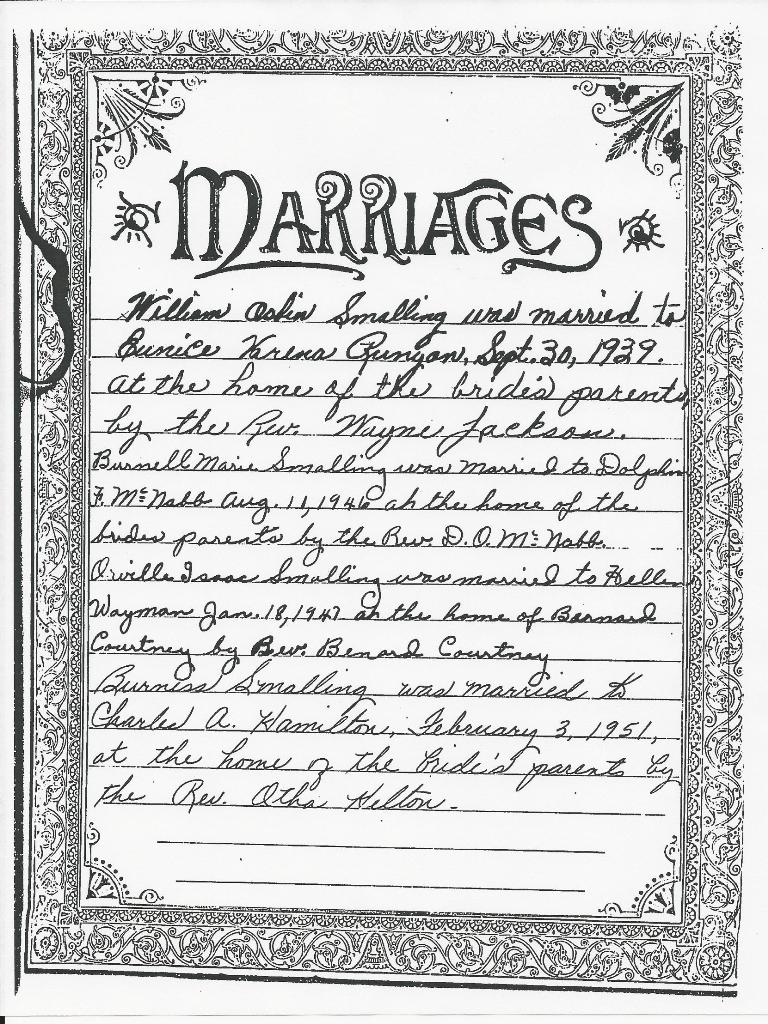 MARRIAGES
William Osbin Smalling was married to
Eunice Varena Runyon, Sept. 30, 1939.
at the home of the bride's parents
by the Rev. Wayne Jackson.
Burnell Marie Smalling was married to Dolphin
F. McNabb Aug. 11, 1946 at the home of the
brides parents by the Rev. D. O. McNabb.
Orville Isaac Smalling was married to Hellen
Wayman Jan. 18, 1947 at the home of Barnard
Courtney by Rev. Benard Courtney
Burniss Smalling was married to
Charles A. Hamilton, February 3, 1951,
at the home of the bride's parents by
the Rev. Otha Helton.